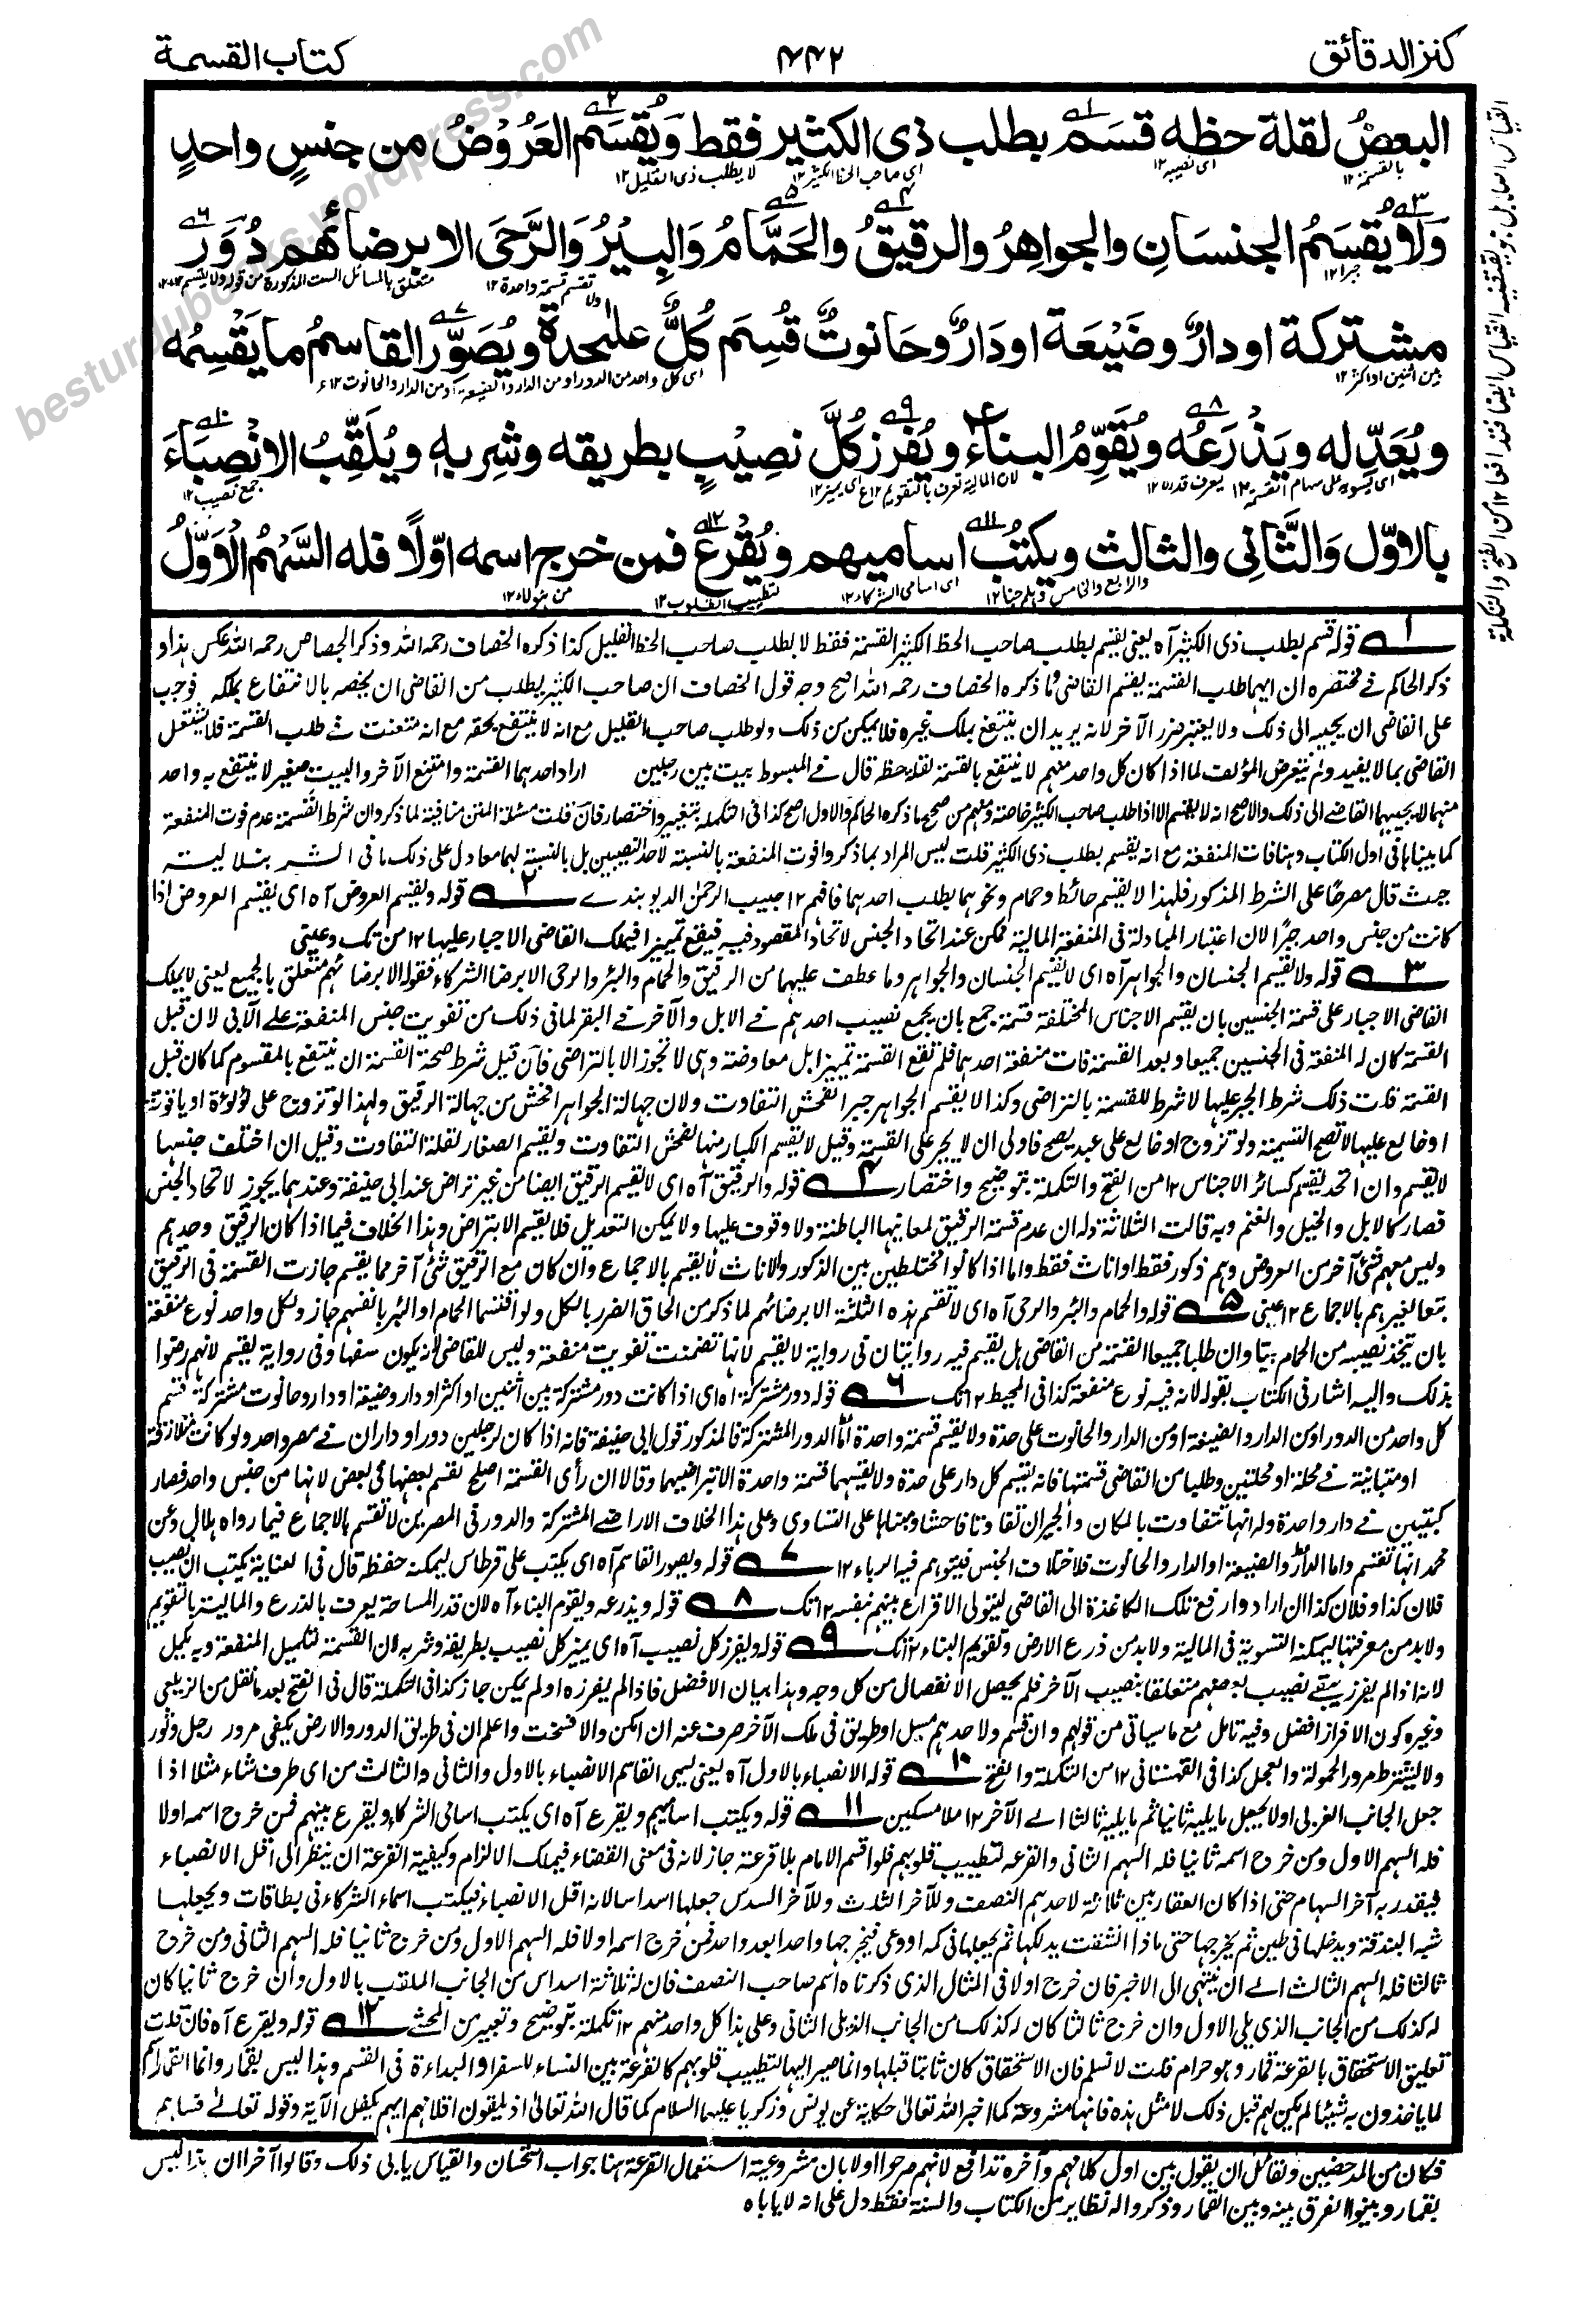 كنز الدقائق
٤٤٢
كتاب القسمة
البعض لقلة حظه قسم بطلب ذى الكثير فقط وَيُقْسَم العَرُوْضُ من جنسٍ واحدٍ
بالقسمة ١٢ اى نصيبه ١٢ اى صاحب الحظ الكثير ١٢ لا بطلب ذى القليل ١٢
وَلَا يُقسَمُ الجنسَانِ والجواهرُ والرقيقُ والحَمَّامُ وَالبِيْرُ وَالرَّحَى الا برضائهم دُوَرٌ
جبرا ١٢ ولا تقسم قسمة واحدة ١٢ متعلق بالمسائل الست المذكورة من قوله ولا يقسم ١٢
مشتركة او دارٌ وضَيْعَة او دَارٌ وحَانوتٌ قُسِمَ كُلٌّ علٰحدة ويُصَوِّر القاسمُ ما يَقْسِمُه
بين اثنين او اكثر ١٢ اى كل واحد من الدور او من الدار والضيعة او من الدار والحانوت ١٢
ويُعَدِّله ويَذْرَعُه ويُقَوِّمُ البناءَ ويُفرِز كلَّ نصِيْبٍ بطريقه وشِربهٖ ويُلَقِّبُ الانْصِبَاءَ
اى يسويه على سهام القسمة ١٢ يعرف قدره ١٢ لان المالية تعرف بالتقويم ١٢ اى يميز ١٢ جمع نصيب ١٢
بالاوّل وَالثَّانى والثالث ويكتُبُ اساميهم ويُقرِعُ فمن خرج اسمه اوّلًا فله السَّهْمُ الاوّلُ
والرابع والخامس وهلم جرا ١٢ اى اسامى الشركاء ١٢ لتطييب القلوب ١٢ من هؤلاء ١٢
١ قوله قسم بطلب ذى الكثير آه يعنى يقسم بطلب صاحب الحظ الكثير القسمة فقط لا بطلب صاحب الحظ القليل كذا ذكره الخصاف رحمه الله وذكر الجصاص رحمه الله عكس هذا و
ذكر الحاكم فى مختصره ان ايهما طلب القسمة يقسم القاضى وما ذكره الخصاف رحمه الله اصح وجه قول الخصاف ان صاحب الكثير يطلب من القاضى ان يخصه بالانتفاع بملكه فوجب
على القاضى ان يجيبه الى ذلك ولا يعتبر ضرر الآخر لانه يريد ان ينتفع بملك غيره فلا يمكن من ذلك ولو طلب صاحب القليل مع انه لا ينتفع بحقه مع انه متعنت فى طلب القسمة فلا يشتغل
القاضى بما لا يفيد ولم يتعرض المؤلف لما اذا كان كل واحد منهم لا ينتفع بالقسمة لقلة حظه قال فى المبسوط بيت بين رجلين اراد احدهما القسمة وامتنع الآخر والبيت صغير لا ينتفع به واحد
منهما لا يجيبهما القاضى الى ذلك والاصح انه لا يقسم الا اذا طلب صاحب الكثير خاصة ومنهم من صحح ما ذكره الحاكم والاول اصح كذا فى التكملة بتغيير واختصار فان قلت مسئلة المتن منافية لما ذكر وان شرط القسمة عدم فوت المنفعة
كما بينا فى اول الكتاب وهنا فات المنفعة مع انه يقسم بطلب ذى الكثير قلت ليس المراد بما ذكروا فوت المنفعة بالنسبة لاحد النصيبين بل بالنسبة لهما معا دل على ذلك ما فى الشرنبلالية
حيث قال مصرحا على الشرط المذكور فلهذا لا يقسم حائط وحمام ونحوهما بطلب احدهما فافهم ١٢ حبيب الرحمٰن الديوبندى ٢ قوله ويقسم العروض آه اى يقسم العروض اذا
كانت من جنس واحد جبرًا لان اعتبار المبادلة فى المنفعة المالية ممكن عند اتحاد الجنس لاتحاد المقصود فيه فيقع تمييزا فيملك القاضى الاجبار عليها ١٢ من تك وعينى
٣ قوله ولا يقسم الجنسان والجواهر آه اى لا يقسم الجنسان والجواهر وما عطف عليهما من الرقيق والحمام والبئر والرحى الا برضا الشركاء فقوله الا برضائهم متعلق بالجميع يعنى لا يملك
القاضى الاجبار على قسمة الجنسين بان يقسم الاجناس المختلفة قسمة جمع بان يجمع نصيب احدهم فى الابل والآخر فى البقر لما فى ذلك من تفويت جنس المنفعة على الآبى لان قبل
القسمة كان له المنفعة فى الجنسين جميعا وبعد القسمة فات منفعة احدهما فلم تقع القسمة تمييزا بل معاوضة وهى لا تجوز الا بالتراضى فان قيل شرط صحة القسمة ان ينتفع بالمقسوم كما كان قبل
القسمة قلت ذلك شرط الجبر عليها لا شرط للقسمة بالتراضى وكذا لا يقسم الجواهر جبرا لفحش التفاوت ولان جهالة الجواهر افحش من جهالة الرقيق ولهذا لو تزوج على لؤلؤة او ياقوتة
او خالع عليها لا تصح التسمية ولو تزوج او خالع على عبد يصح فاولى ان لا يجبر على القسمة وقيل لا يقسم الكبار منها لفحش التفاوت ويقسم الصغار لقلة التفاوت وقيل ان اختلف جنسها
لا يقسم وان اتحد يقسم كسائر الاجناس ١٢ من الفتح والتكملة بتوضيح واختصار ٤ قوله والرقيق آه اى لا يقسم الرقيق ايضا من غير تراض عند ابى حنيفة وعندهما يجوز لاتحاد الجنس
فصار كالابل والخيل والغنم وبه قالت الثلاثة وله ان عدم قسمة الرقيق لمعانيها الباطنة ولا وقوف عليها ولا يمكن التعديل فلا يقسم الا بتراض وهذا الخلاف فيما اذا كان الرقيق وحدهم
وليس معهم شئ آخر من العروض وهم ذكور فقط او اناث فقط واما اذا كانوا مختلطين بين الذكور والاناث لا يقسم بالاجماع وان كان مع الرقيق شئ آخر مما يقسم جازت القسمة فى الرقيق
تبعا لغيرهم بالاجماع ١٢ عينى ٥ قوله والحمام والبئر والرحى آه اى لا تقسم هذه الثلثة الا برضائهم لما ذكر من الحاق الضرر بالكل ولو اقتسما الحمام او البئر بانفسهم جاز ولكل واحد نوع منفعة
بان يتخذ نصيبه من الحمام بيتا وان طلبا جميعا القسمة من القاضى هل يقسم فيه روايتان فى رواية لا يقسم لانها تضمنت تفويت منفعة وليس للقاضى ان يكون سفها وفى رواية يقسم لانهم رضوا
بذلك واليه اشار فى الكتاب بقوله لانه فيه نوع منفعة كذا فى المحيط ١٢ تك ٦ قوله دور مشتركة آه اى اذا كانت دور مشتركة بين اثنين او اكثر او دار وضيعة او دار وحانوت مشتركة قسم
كل واحد من الدور او من الدار والضيعة او من الدار والحانوت على حدة ولا يقسم قسمة واحدة اما الدور المشتركة فالمذكور قول ابى حنيفة فانه اذا كان لرجلين دور او داران فى مصر واحد ولو كانت متلازقة
او متباينة فى محلة او محلتين وطلبا من القاضى قسمتها فانه يقسم كل دار على حدة ولا يقسمهما قسمة واحدة الا بتراضيهما وقالا ان رأى القسمة اصلح تقسم بعضها فى بعض لانها من جنس واحد فصار
كبيتين فى دار واحدة وله انها تتفاوت بالمكان والجيران تفاوتا فاحشا ومبناها على التساوى وعلى هذا الخلاف الاراضى المشتركة والدور فى المصرين لا تقسم بالاجماع فيما رواه هلال وعن
محمد انها تقسم واما الدار والضيعة او الدار والحانوت فلاختلاف الجنس فيتوهم فيه الرباء ١٢ ٧ قوله ويصور القاسم آه اى يكتب على قرطاس ليمكنه حفظه قال فى العناية يكتب ان نصيب
فلان كذا وفلان كذا ان اراد رفع تلك الكاغذة الى القاضى ليتولى الاقراع بينهم بنفسه ١٢ تك ٨ قوله ويذرعه ويقوم البناء آه لان قدر المساحة يعرف بالذرع والمالية بالتقويم
ولا بد من معرفتها ليمكنه التسوية فى المالية ولا بد من ذرع الارض وتقويم البناء ١٢ تك ٩ قوله ويفرز كل نصيب آه اى يميز كل نصيب بطريقه وشربه لان القسمة لتكميل المنفعة وبه يكمل
لانه اذا لم يفرز يبقى نصيب بعضهم متعلقا بنصيب الآخر فلم يحصل الانفصال من كل وجه وهذا بيان الافضل فاذا لم يفرزه او لم يمكن جاز كذا فى التكملة قال فى الفتح بعد ما نقل من الزيلعى
وغيره كون الافراز افضل وفيه تامل مع ما سياتى من قولهم وان قسم ولاحدهم مسيل او طريق فى ملك الآخر صرف عنه ان امكن والا فسخت واعلم ان فى طريق الدور والارض يكفى مرور رجل وثور
ولا يشترط مرور الحمولة والعجل كذا فى القهستانى ١٢ من التكملة والفتح ١٠ قوله الانصباء بالاول آه يعنى يسمى القاسم الانصباء بالاول والثانى والثالث من اى طرف شاء مثلا اذا
جعل الجانب الغربى اولا يجعل ما يليه ثانيا ثم ما يليه ثالثا الى الآخر ١٢ ملا مسكين ١١ قوله ويكتب اساميهم ويقرع آه اى يكتب اسامى الشركاء ويقرع بينهم فمن خرج اسمه اولا
فله السهم الاول ومن خرج اسمه ثانيا فله السهم الثانى والقرعة لتطييب قلوبهم فلو اقسم الامام بلا قرعة جاز لانه فى معنى القضاء فيملك الالزام وكيفية القرعة ان ينظر الى اقل الانصباء
فيقدر به آخر السهام حتى اذا كان العقار بين ثلاثة لاحدهم النصف وللآخر الثلث وللآخر السدس جعلها اسداسا لانه اقل الانصباء فيكتب اسماء الشركاء فى بطاقات ويجعلها
شبه البندقة ويدخلها فى طين ثم يخرجها حتى ما اذا انشفت يدلكها ثم يجعلها فى كمه او وعى فيخرجها واحدا بعد واحد فمن خرج اسمه اولا فله السهم الاول ومن خرج ثانيا فله السهم الثانى ومن خرج
ثالثا فله السهم الثالث الى ان ينتهى الى الاخير فان خرج اولا فى المثال الذى ذكرناه اسم صاحب النصف فان له ثلاثة اسداس من الجانب الملقب بالاول وان خرج ثانيا كان
له كذلك من الجانب الذى يلى الاول وان خرج ثالثا كان له كذلك من الجانب الذى يلى الثانى وعلى هذا كل واحد منهم ١٢ تكملة بتوضيح وتعبير من المحشى ١٢ قوله ويقرع آه فان قلت
تعليق الاستحقاق بالقرعة قمار وهو حرام قلت لا نسلم فان الاستحقاق كان ثابتا قبلها وانما صير اليها لتطييب قلوبهم كالقرعة بين النساء للسفر او البداءة فى القسم وهذا ليس بقمار وانما القمار اسم
لما ياخذون به شيئا لم يكن لهم قبل ذلك لا مثل هذه فانها مشروعة كما اخبر الله تعالى حكاية عن يونس وزكريا عليهما السلام كما قال الله تعالى اذ يلقون اقلامهم ايهم يكفل الآية وقوله تعالى فساهم
فكان من المدحضين ولقائل ان يقول بين اول كلامهم وآخره تدافع لانهم صرحوا اولا بان مشروعية استعمال القرعة هنا جواب استحسان والقياس يابى ذلك وقالوا آخرا ان هذا ليس
بقمار وبينوا الفرق بينه وبين القمار وذكروا له نظاير من الكتاب والسنة فقط دل على انه لا ياباه
القياس اصلا بل هو يقتضيه القياس ايضا فتدافعا ١٢ من الفتح والتكملة
besturdubooks.wordpress.com